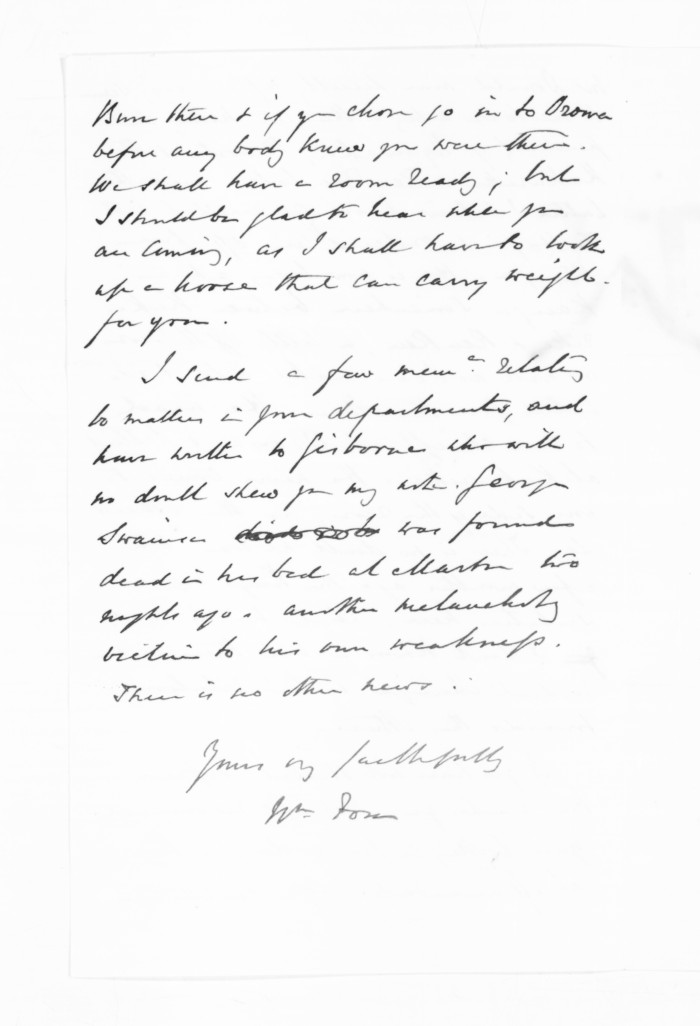 there & if you chose go in to Oroua
before any body knew you were there.
We shall have a room ready; but
I should be glad to hear when you
are coming, as I shall have to look
up a horse that can carry weight.
for you.
I send a few mema. relating
to matters in your departments, and
have written to Gisborne who will
no doubt shew you my note. George
Swainson was found
dead in his bed at Marton two
nights ago. another melancholy
victim to his own weakness.
There is no other news.
Yours very faithfully
Wm Fox